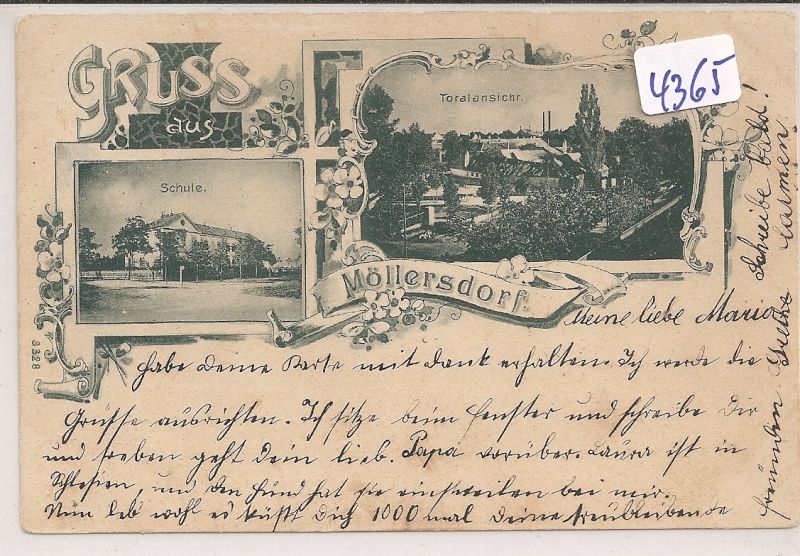 GRUSS
aus
4365
Totalansicht.
Schule.
Möllersdorf.
3328
Meine liebe Maria
habe deine Karte mit dank erhalten. Ich werde die
Grüsse ausrichten. Ich sitze beim Fenster und schreibe Dir
und soeben geht dein lieb. Papa vorüber. Laura ist in
Schlesien, und den Hund hat sie einstweilen bei mir.
Nun leb wohl es küsst Dich 1000 mal deine treubleibende
Schreibe bald!
Carmen